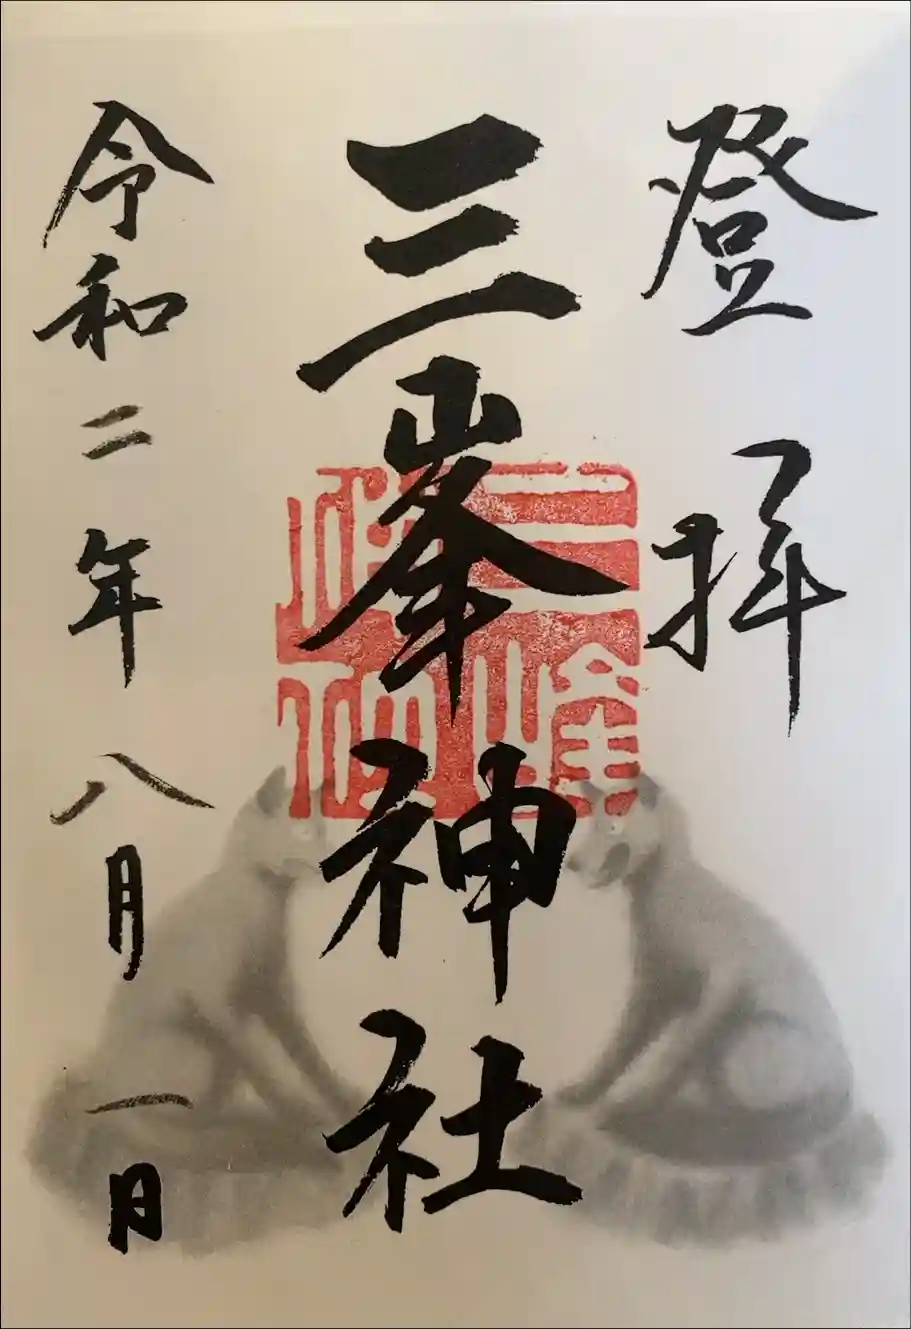 登拝
三峯神社
令和二年八月一日